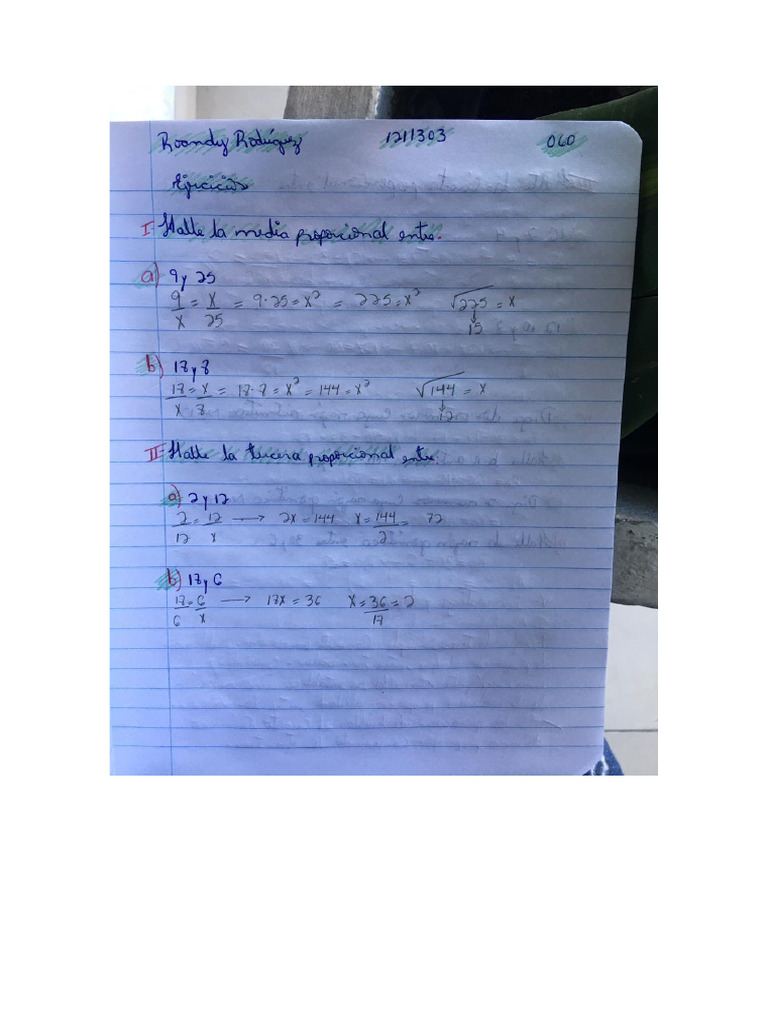 Roandy Rodríguez 1211303 060
Ejercicios
I- Halle la media proporcional entre.
a) 9 y 25
9/x = x/25 = 9·25 = x² = 225 = x² √225 = x
15
b) 18 y 8
18/x = x/8 = 18·8 = x² = 144 = x² √144 = x
12
II- Halle la tercera proporcional entre.
a) 2 y 12
2/12 = 12/x → 2x = 144 x = 144/2 = 72
b) 18 y 6
18/6 = 6/x → 18x = 36 x = 36/18 = 2